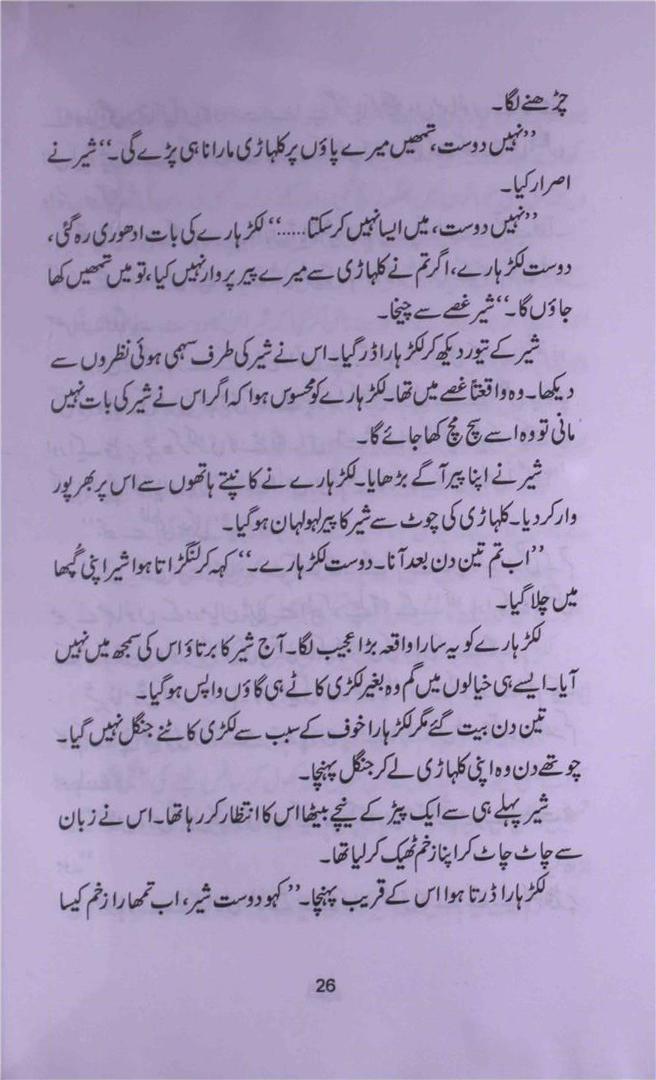 چڑھنے لگا۔
”نہیں دوست، تمھیں میرے پاؤں پر کلہاڑی مارنا ہی پڑے گی۔“ شیر نے
اصرار کیا۔
”نہیں دوست، میں ایسا نہیں کر سکتا.....“ لکڑہارے کی بات ادھوری رہ گئی،
دوست لکڑہارے، اگر تم نے کلہاڑی سے میرے پیر پر وار نہیں کیا، تو میں تمھیں کھا
جاؤں گا۔“ شیر غصے سے چیخا۔
شیر کے تیور دیکھ کر لکڑہارا ڈر گیا۔ اس نے شیر کی طرف سہمی ہوئی نظروں سے
دیکھا۔ وہ واقعتاً غصے میں تھا۔ لکڑہارے کو محسوس ہوا کہ اگر اس نے شیر کی بات نہیں
مانی تو وہ اسے سچ مچ کھا جائے گا۔
شیر نے اپنا پیر آگے بڑھایا۔ لکڑہارے نے کانپتے ہاتھوں سے اس پر بھر پور
وار کر دیا۔ کلہاڑی کی چوٹ سے شیر کا پیر لہولہان ہو گیا۔
”اب تم تین دن بعد آنا۔ دوست لکڑہارے۔“ کہہ کر لنگڑاتا ہوا شیر اپنی گُپھا
میں چلا گیا۔
لکڑہارے کو یہ سارا واقعہ بڑا عجیب لگا۔ آج شیر کا برتاؤ اس کی سمجھ میں نہیں
آیا۔ ایسے ہی خیالوں میں گم وہ بغیر لکڑی کاٹے ہی گاؤں واپس ہو گیا۔
تین دن بیت گئے مگر لکڑہارا خوف کے سبب سے لکڑی کاٹنے جنگل نہیں گیا۔
چوتھے دن وہ اپنی کلہاڑی لے کر جنگل پہنچا۔
شیر پہلے ہی سے ایک پیڑ کے نیچے بیٹھا اس کا انتظار کر رہا تھا۔ اس نے زبان
سے چاٹ چاٹ کر اپنا زخم ٹھیک کر لیا تھا۔
لکڑہارا ڈرتا ہوا اس کے قریب پہنچا۔ ”کہو دوست شیر، اب تمھارا زخم کیسا
26